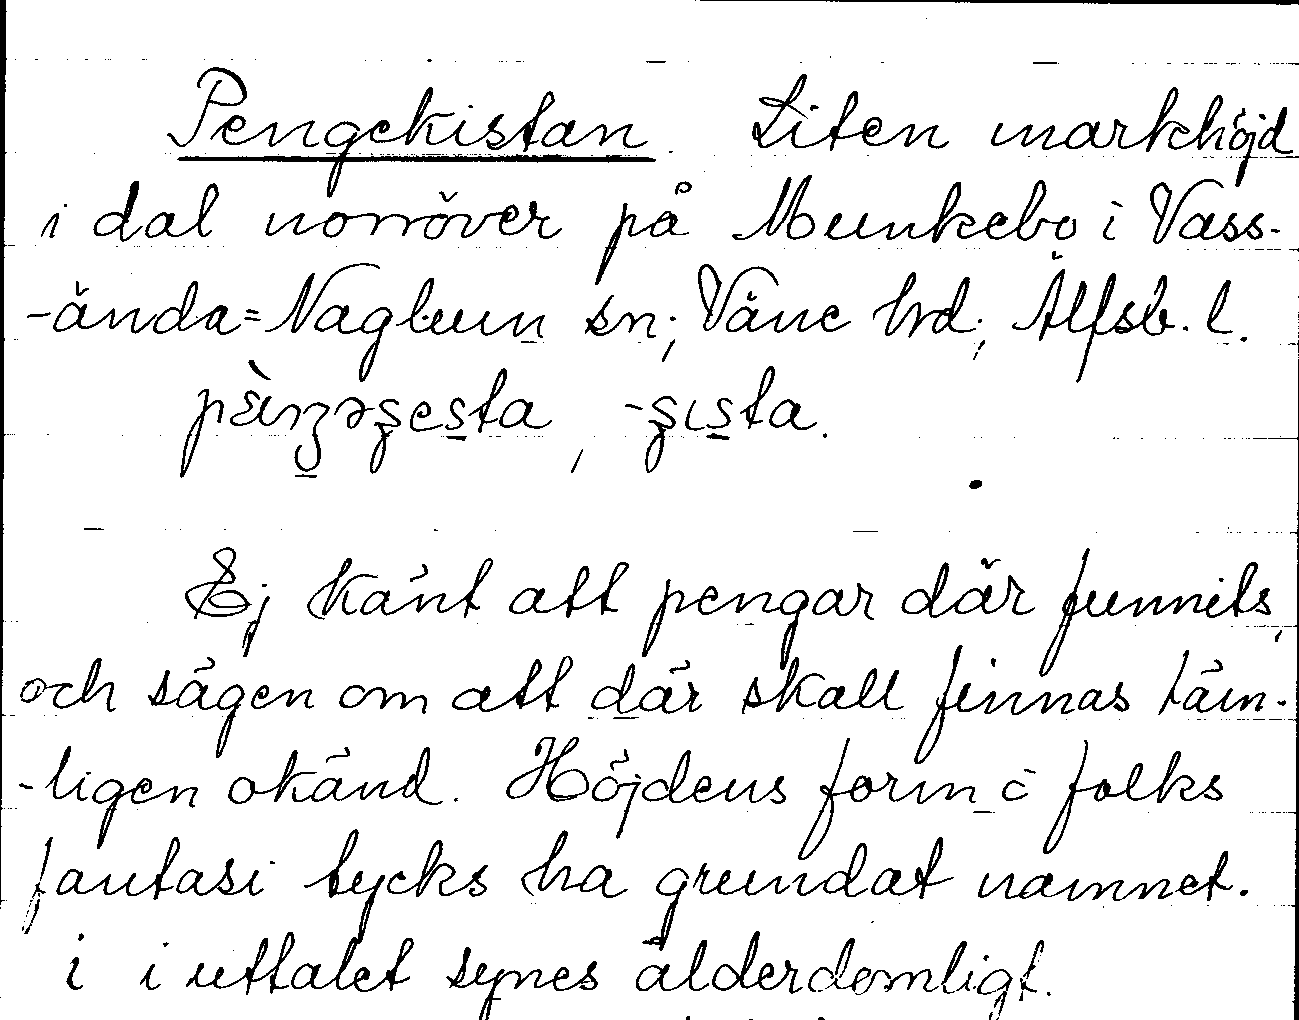 Pengekistan. Liten markhöjd
i dal norröver på Munkebo i Väss-
-ända=Naglum sn; Väne hrd; Älfsb. l.
pæ̀ŋəʂesta, -ʂɪsta.
Ej känt att pengar där funnits,
och sägen om att där skall finnas täm-
-ligen okänd. Höjdens form i folks
fantasi tycks ha grundat namnet.
i i uttalet synes ålderdomligt.